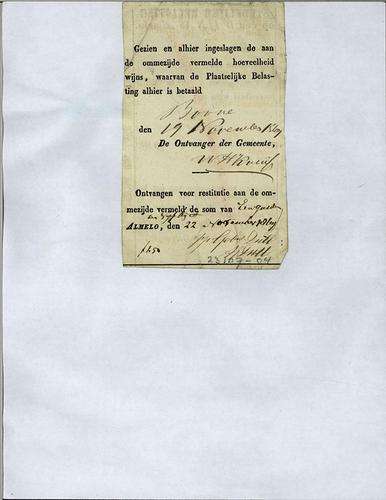 Gezien en alhier ingeslagen de aan
de ommezijde vermelde hoeveelheid
wijns, waarvan de Plaatselijke Belas-
ting alhier is betaald
Borne
den 19 November
De Ontvanger der Gemeente,
Ontvangen voor restitutie aan de om-
mezijde vermeld de som van Een gulden
en vijftig ct
ALMELO, den 22 November
f 1.50
23/07-04